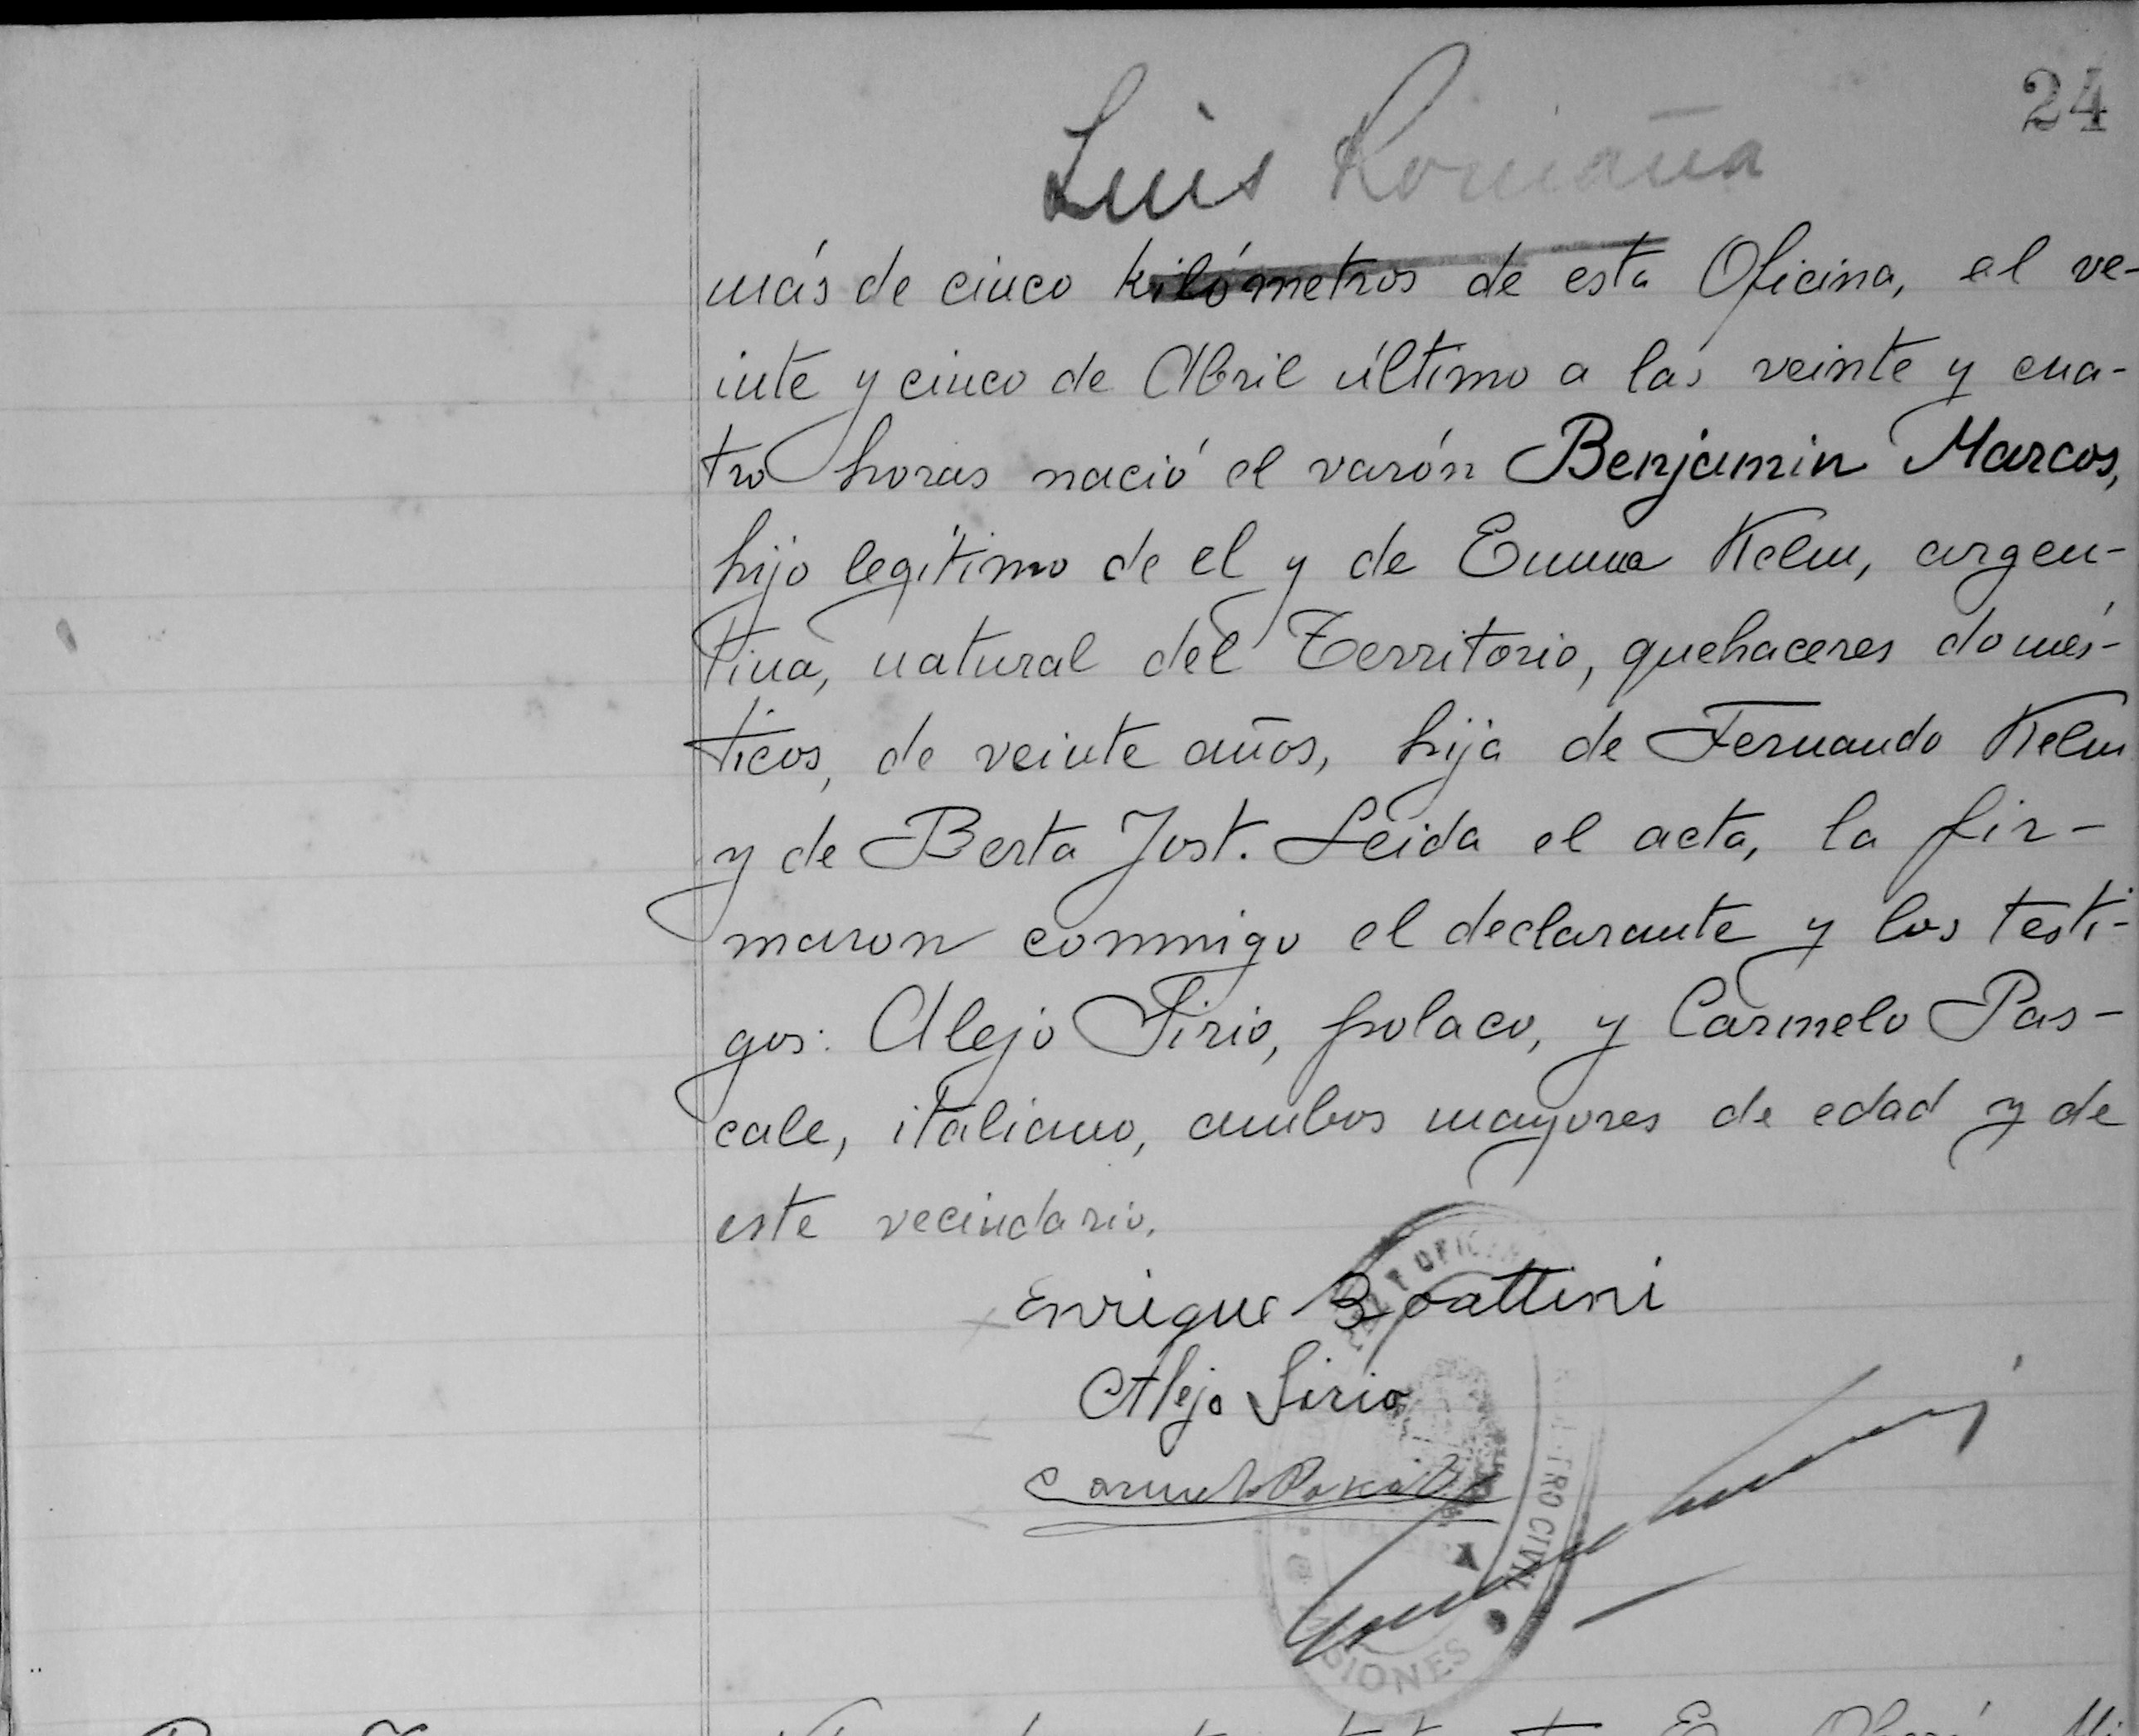 24
Luis Romaña
más de cinco kilómetros de esta Oficina, el ve-
inte y cinco de Abril último a las veinte y cua-
tro horas nació el varón Benjamin Marcos,
hijo legítimo de el y de Emma Kelm, argen-
tina, natural del Territorio, quehaceres domés-
ticos, de veinte años, hija de Fernando Kelm
y de Berta Jost. Leida el acta, la fir-
maron conmigo el declarante y los testi-
gos: Alejo Sirio, polaco, y Carmelo Pas-
cale, italiano, ambos mayores de edad y de
este vecindario.
Enrique Boattini
Alejo Sirio
Carmelo Pascale
OFICINA
REGISTRO CIVIL
MISIONES